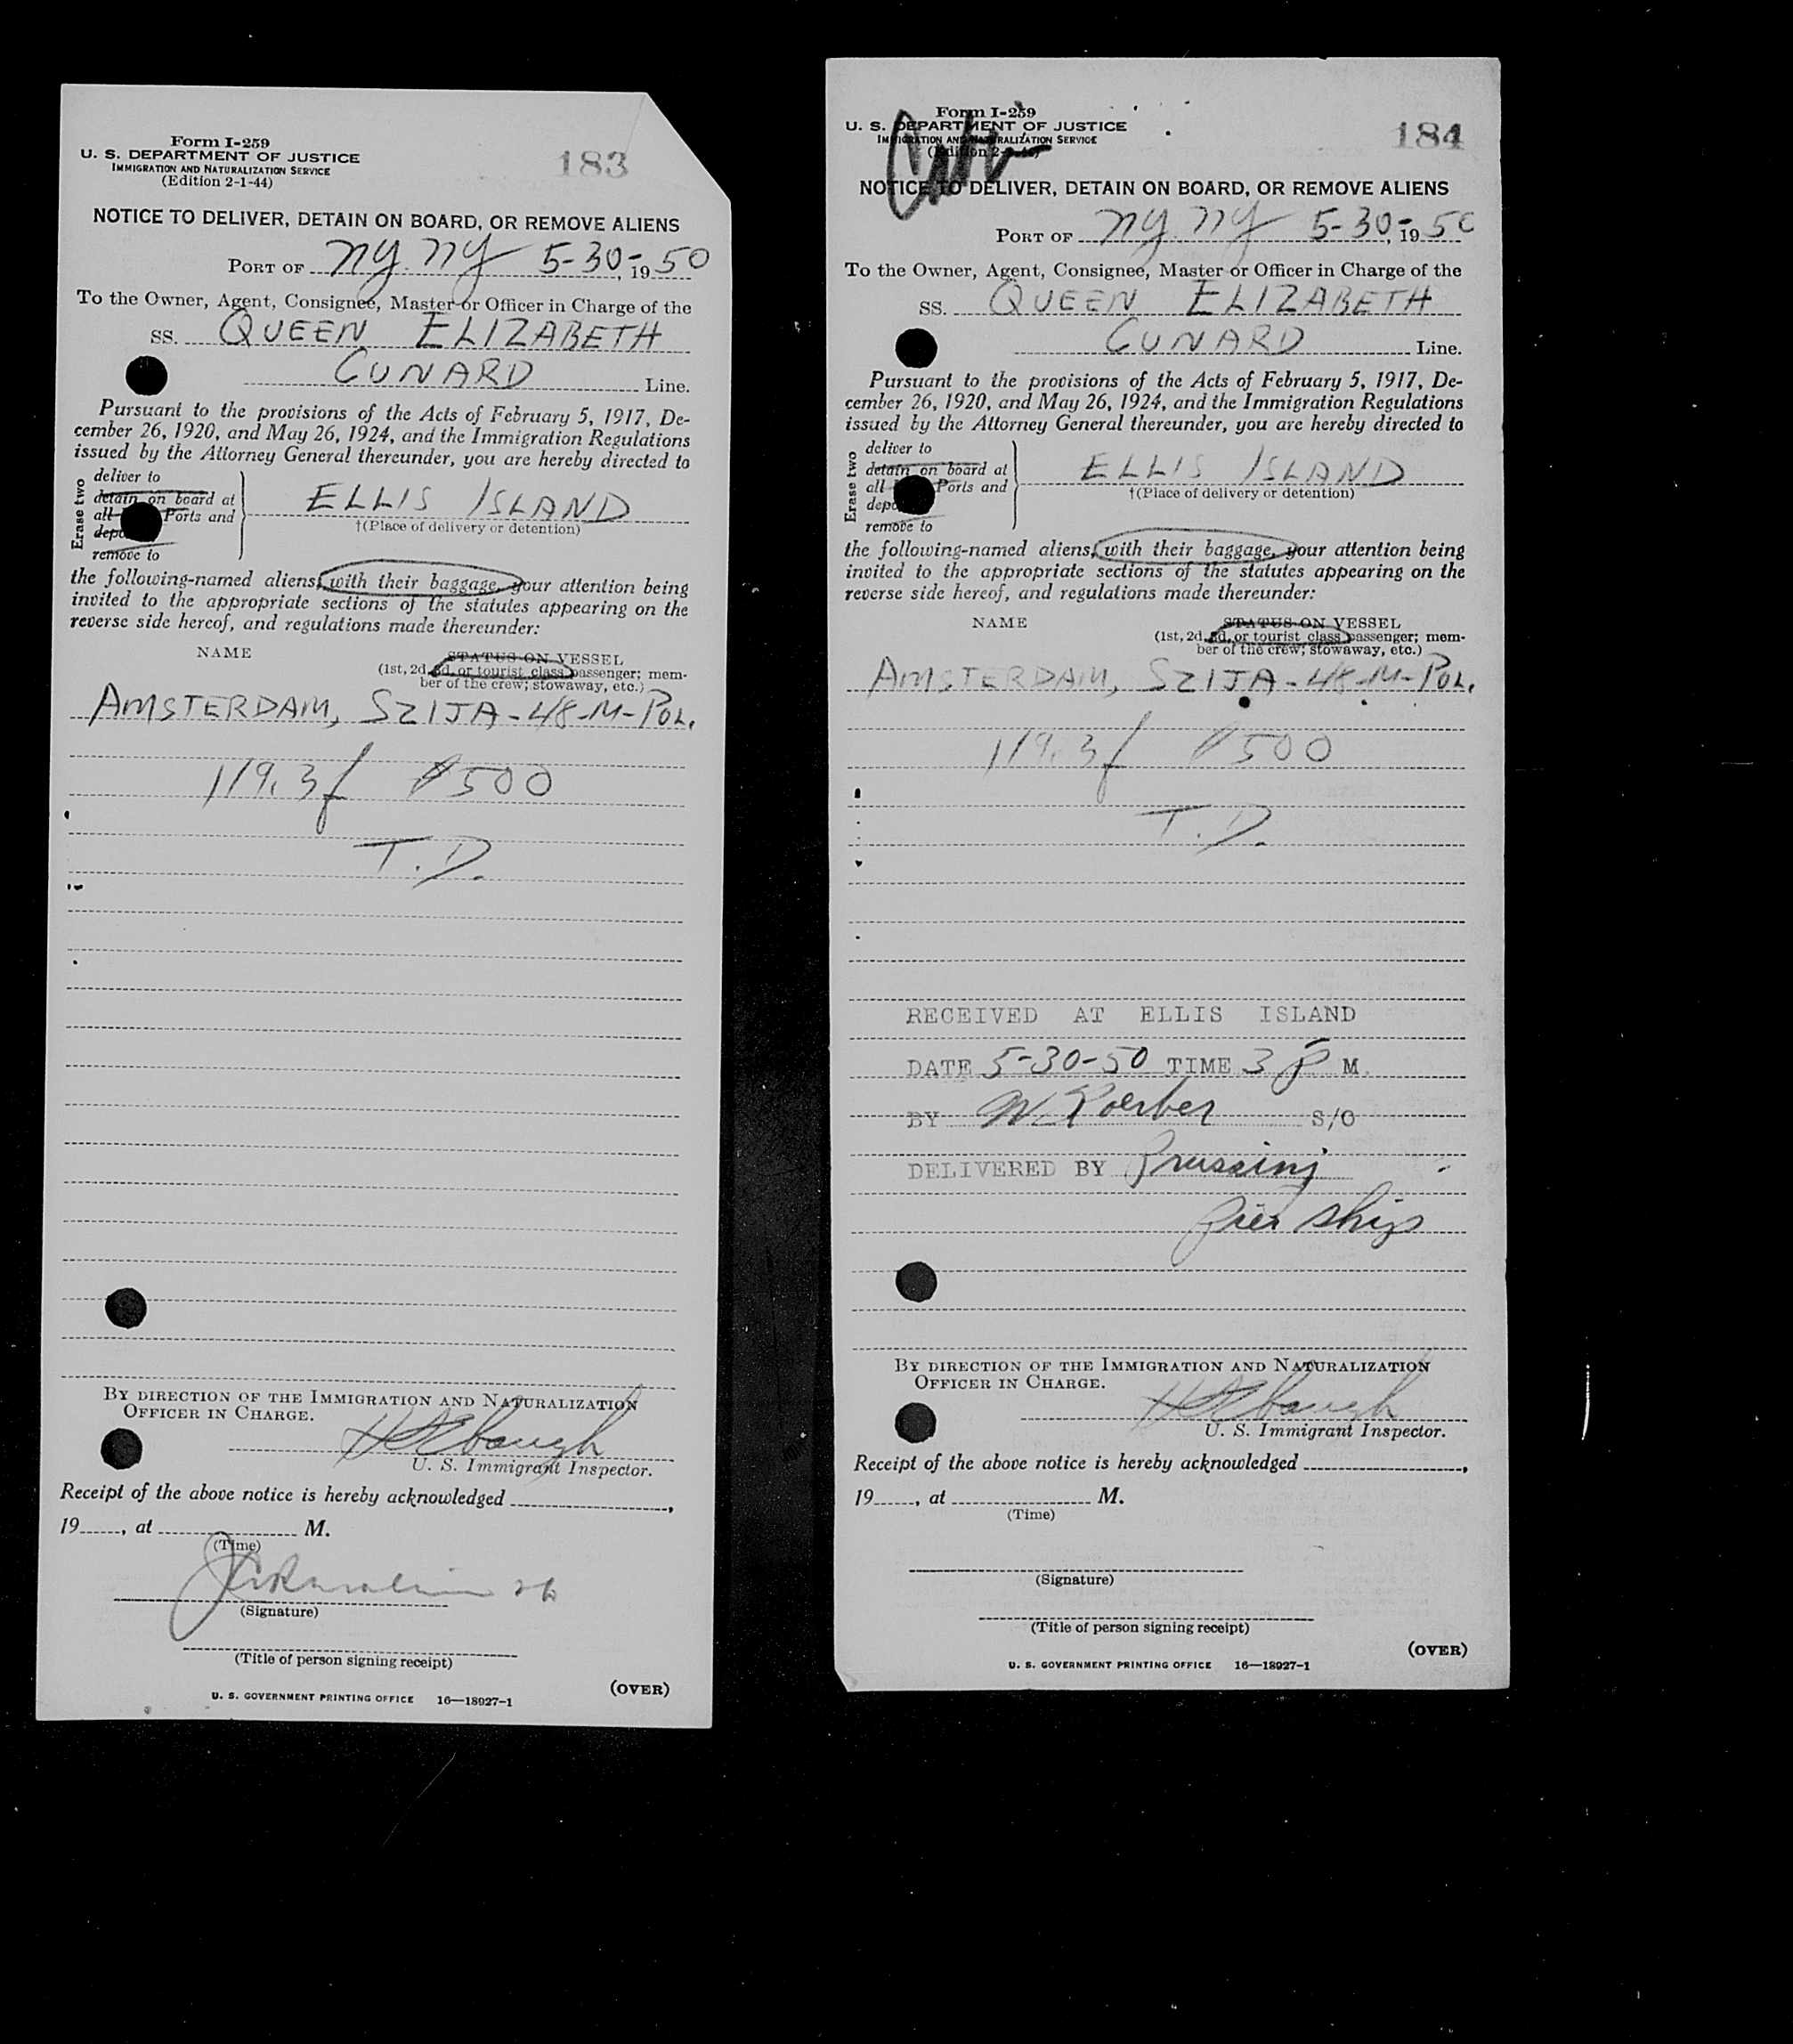 Form I-259
U. S. DEPARTMENT OF JUSTICE
IMMIGRATION AND NATURALIZATION SERVICE
(Edition 2-1-44)
183
NOTICE TO DELIVER, DETAIN ON BOARD, OR REMOVE ALIENS
PORT OF NY. NY 5-30-, 1950
To the Owner, Agent, Consignee, Master or Officer in Charge of the
SS. QUEEN ELIZABETH
CUNARD Line.
Pursuant to the provisions of the Acts of February 5, 1917, De-
cember 26, 1920, and May 26, 1924, and the Immigration Regulations
issued by the Attorney General thereunder, you are hereby directed to
Erase two
deliver to
detain on board at
all Ports and
remove to
ELLIS ISLAND
†(Place of delivery or detention)
the following-named aliens, with their baggage, your attention being
invited to the appropriate sections of the statutes appearing on the
reverse side hereof, and regulations made thereunder:
NAME
STATUS ON VESSEL
(1st, 2d, 3d, or tourist class passenger; mem-
ber of the crew; stowaway, etc.)
AMSTERDAM, SZIJA-48-M-POL.
119.3f $500
T.D.
BY DIRECTION OF THE IMMIGRATION AND NATURALIZATION
OFFICER IN CHARGE.
U. S. Immigrant Inspector.
Receipt of the above notice is hereby acknowledged
19, at M.
(Time)
(Signature)
(Title of person signing receipt)
U. S. GOVERNMENT PRINTING OFFICE 16—18927-1
(OVER)
Form I-259
U. S. DEPARTMENT OF JUSTICE
IMMIGRATION AND NATURALIZATION SERVICE
(Edition 2-1-44)
184
NOTICE TO DELIVER, DETAIN ON BOARD, OR REMOVE ALIENS
PORT OF NY. NY 5-30-, 1950
To the Owner, Agent, Consignee, Master or Officer in Charge of the
SS. QUEEN ELIZABETH
CUNARD Line.
Pursuant to the provisions of the Acts of February 5, 1917, De-
cember 26, 1920, and May 26, 1924, and the Immigration Regulations
issued by the Attorney General thereunder, you are hereby directed to
Erase two
deliver to
detain on board at
all Ports and
remove to
ELLIS ISLAND
†(Place of delivery or detention)
the following-named aliens, with their baggage, your attention being
invited to the appropriate sections of the statutes appearing on the
reverse side hereof, and regulations made thereunder:
NAME
STATUS ON VESSEL
(1st, 2d, 3d, or tourist class passenger; mem-
ber of the crew; stowaway, etc.)
AMSTERDAM, SZIJA-48-M-POL.
119.3f $500
T.D.
RECEIVED AT ELLIS ISLAND
DATE 5-30-50 TIME 3 P M.
BY W. Koerber S/O
DELIVERED BY Prussing
pier ships
BY DIRECTION OF THE IMMIGRATION AND NATURALIZATION
OFFICER IN CHARGE.
U. S. Immigrant Inspector.
Receipt of the above notice is hereby acknowledged
19, at M.
(Time)
(Signature)
(Title of person signing receipt)
U. S. GOVERNMENT PRINTING OFFICE 16—18927-1
(OVER)